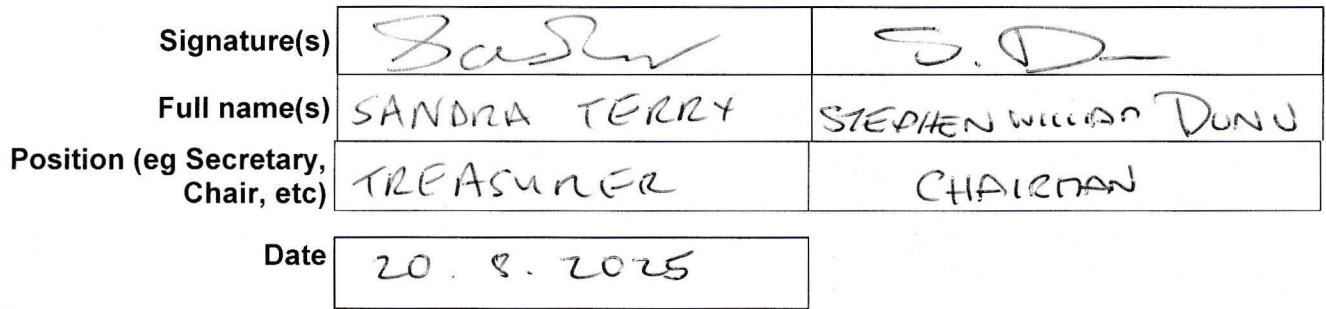 Signature(s) S. D
Full name(s) SANDRA TERRY STEPHEN WILLIAM DUNN
Position (eg Secretary,
Chair, etc) TREASURER CHAIRMAN
Date 20. 8. 2025